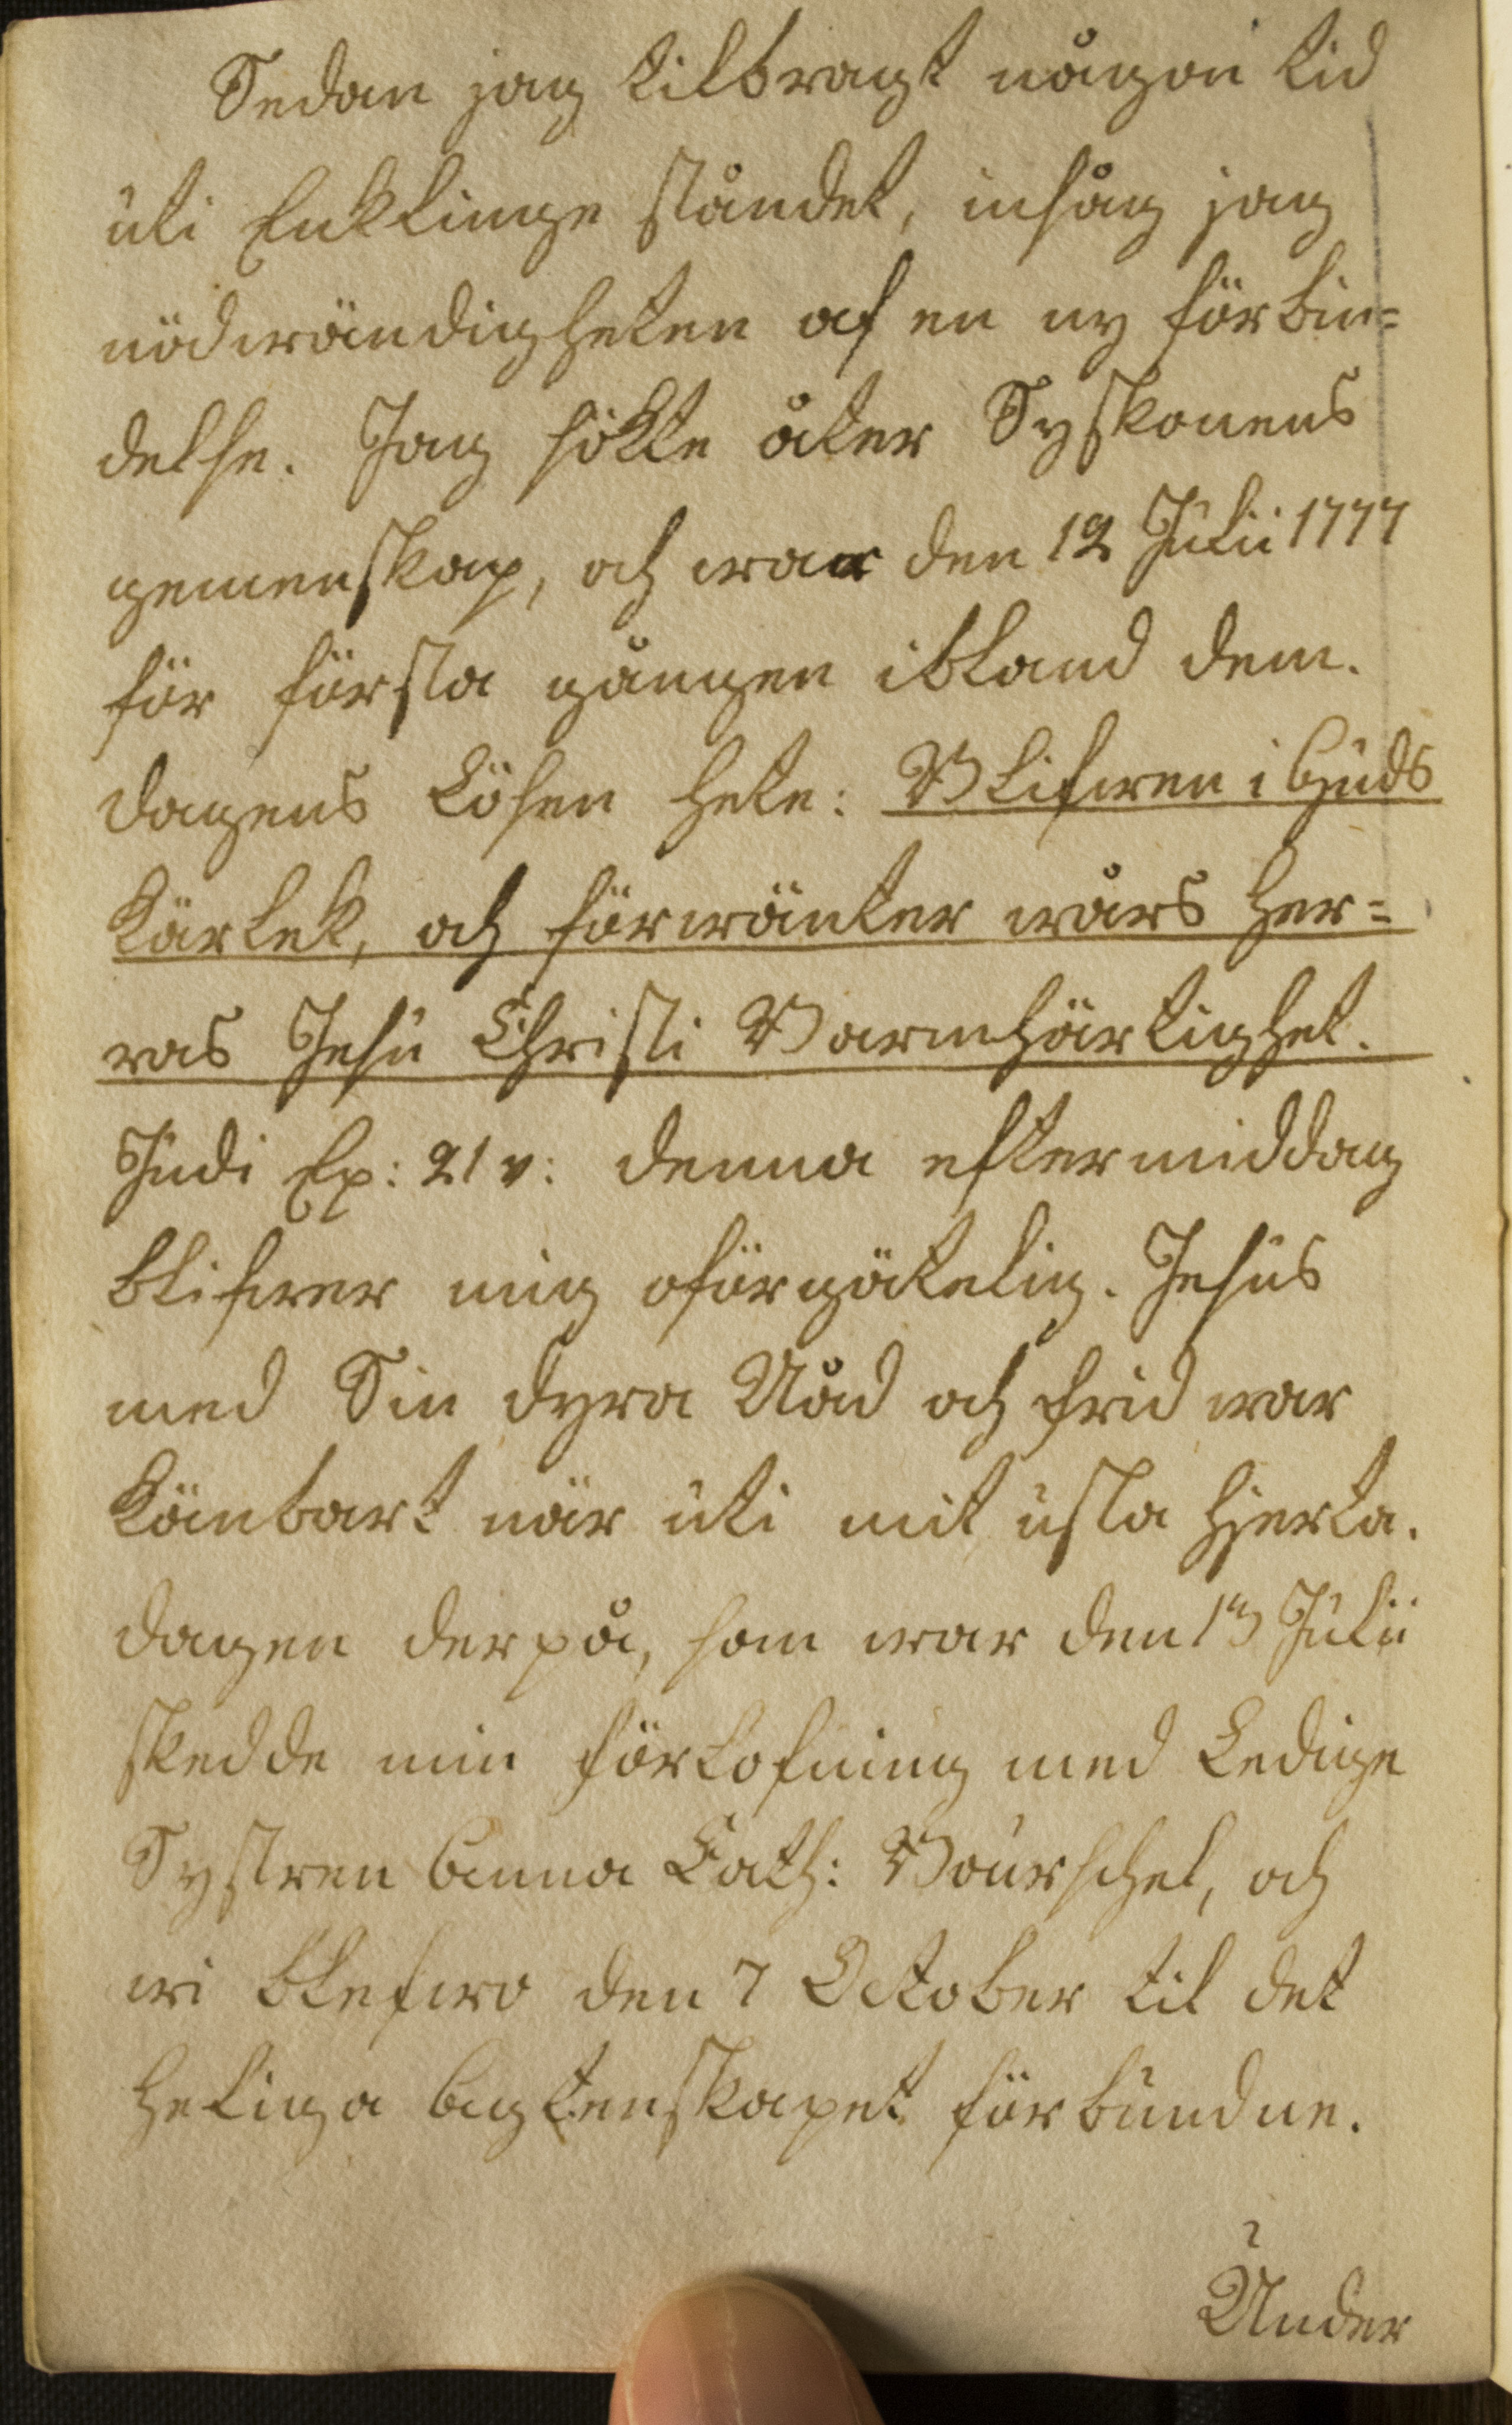 Sedan jag tilbragt någon tid
uti Enklinge ståndet, insåg jag
nödwändigheten af en ny förbin=
delse. Jag sökte åter Syskonens
gemenskap, och war den 12 Julii 1777
för första gången ibland dem.
dagens Lösen hete: Blifwen i Guds
Kärlek, och förwänter wårs Her=
ras Jesu Christi Barmhärtighet.
Judi Ep: 21 v: denna eftermiddag
blifwer mig oförgätelig. Jesus
med Sin dyra Nåd och frid war
Känbart när uti mit usla hjerta.
dagen derpå, som war den 13 Julii
skedde min förlofning med Ledige
Systren Anna Cath: Bourschel, och
wi blefwo den 7 October til det
heliga Agtenskapet förbundne.
Under